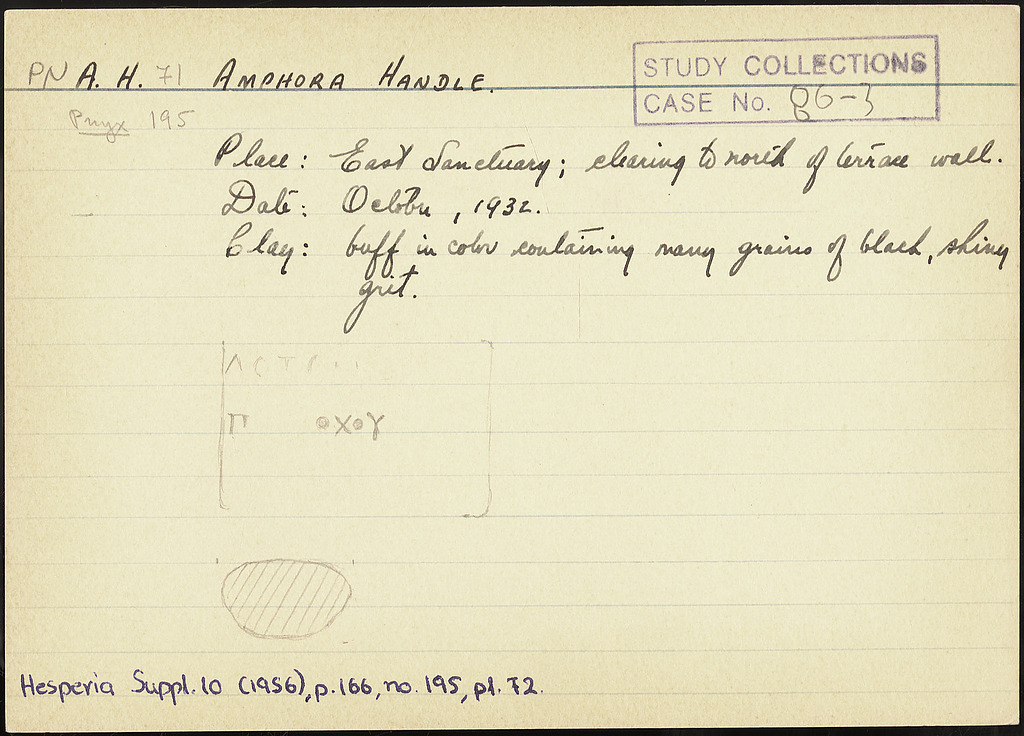 PN A. H. 71 AMPHORA HANDLE.
STUDY COLLECTIONS
CASE No. 86-3
Pnyx 195
Place: East Sanctuary; clearing to north of terrace wall.
Date: October, 1932.
Clay: buff in color containing many grains of black, shiny
grit.
ΑϹΤΙ
Γ ΟΧΟΥ
Hesperia Suppl. 10 (1956), p. 166, no. 195, pl. 72.